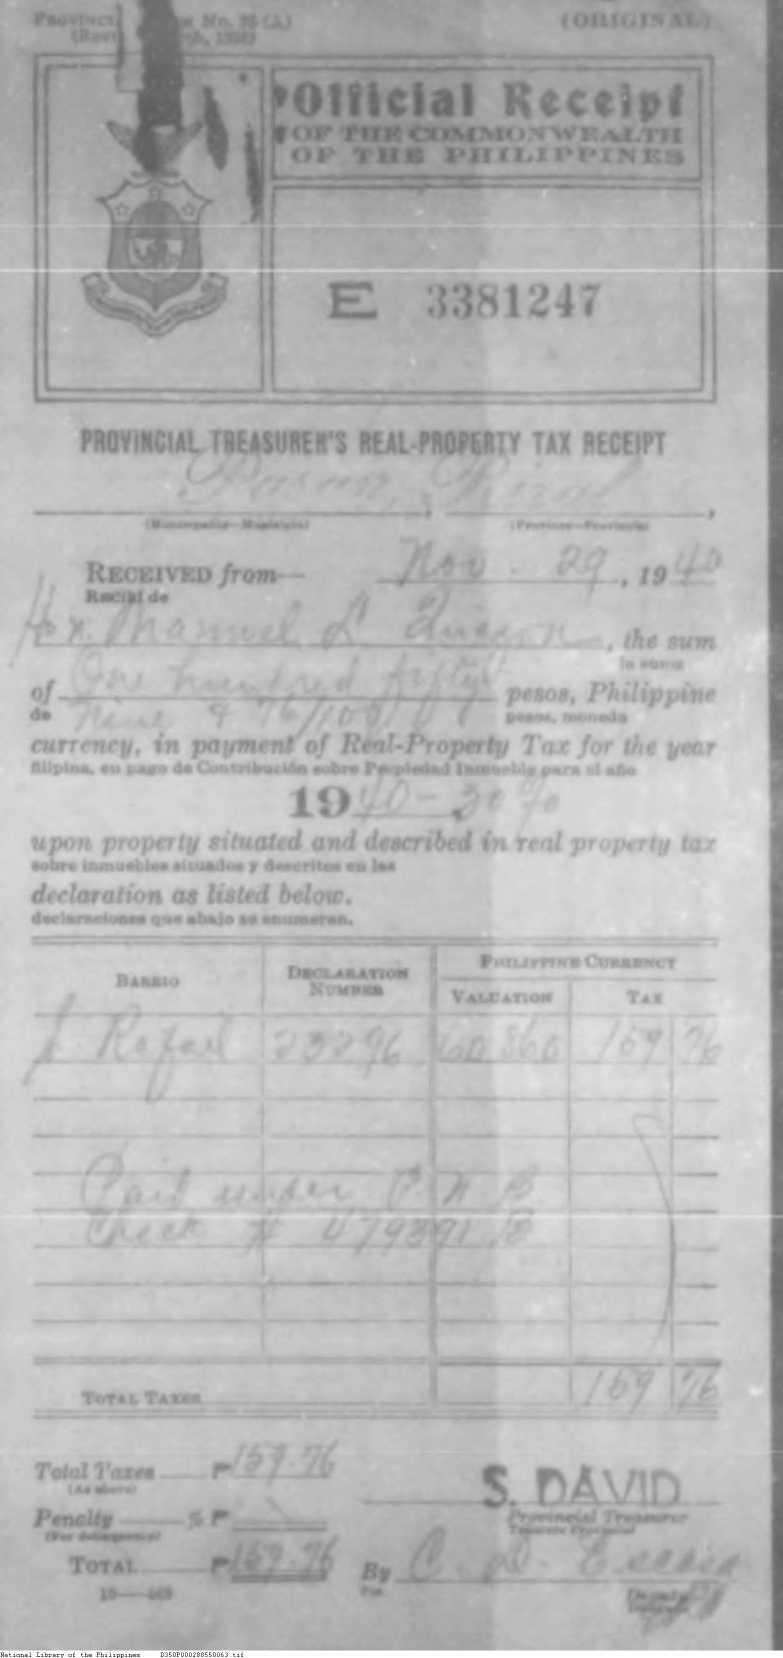 (ORIGINAL)
Official Receipt
OF THE COMMONWEALTH
OF THE PHILIPPINES
E 3381247
PROVINCIAL TREASURER'S REAL-PROPERTY TAX RECEIPT
Pasay, Rizal
(Municipality—Municipio) (Province—Provincia)
RECEIVED from— Nov. 29, 1940
Recibí de
Hon. Manuel L Quezon, the sum
la suma
of One hundred fifty pesos, Philippine
de nine & 76/100 pesos, moneda
currency, in payment of Real-Property Tax for the year
filipina, en pago de Contribución sobre Propiedad Inmueble para el año
1940 - 30%
upon property situated and described in real property tax
sobre inmuebles situados y descritos en las
declaration as listed below.
declaraciones que abajo se enumeran.
BARRIO DECLARATION NUMBER PHILIPPINE CURRENCY
VALUATION TAX
S. Rafael 23296 60 860 159 76
Paid under P. N. B
Check # 479391 B
TOTAL TAXES 159 76
Total Taxes ₱159.76
(As above)
S. DAVID
Penalty % ₱
(For delinquency)
Provincial Treasurer
Tesorero Provincial
TOTAL ₱159.76 By C. D.
Por
Deputy
National Library of the Philippines D350P000288550063.tif